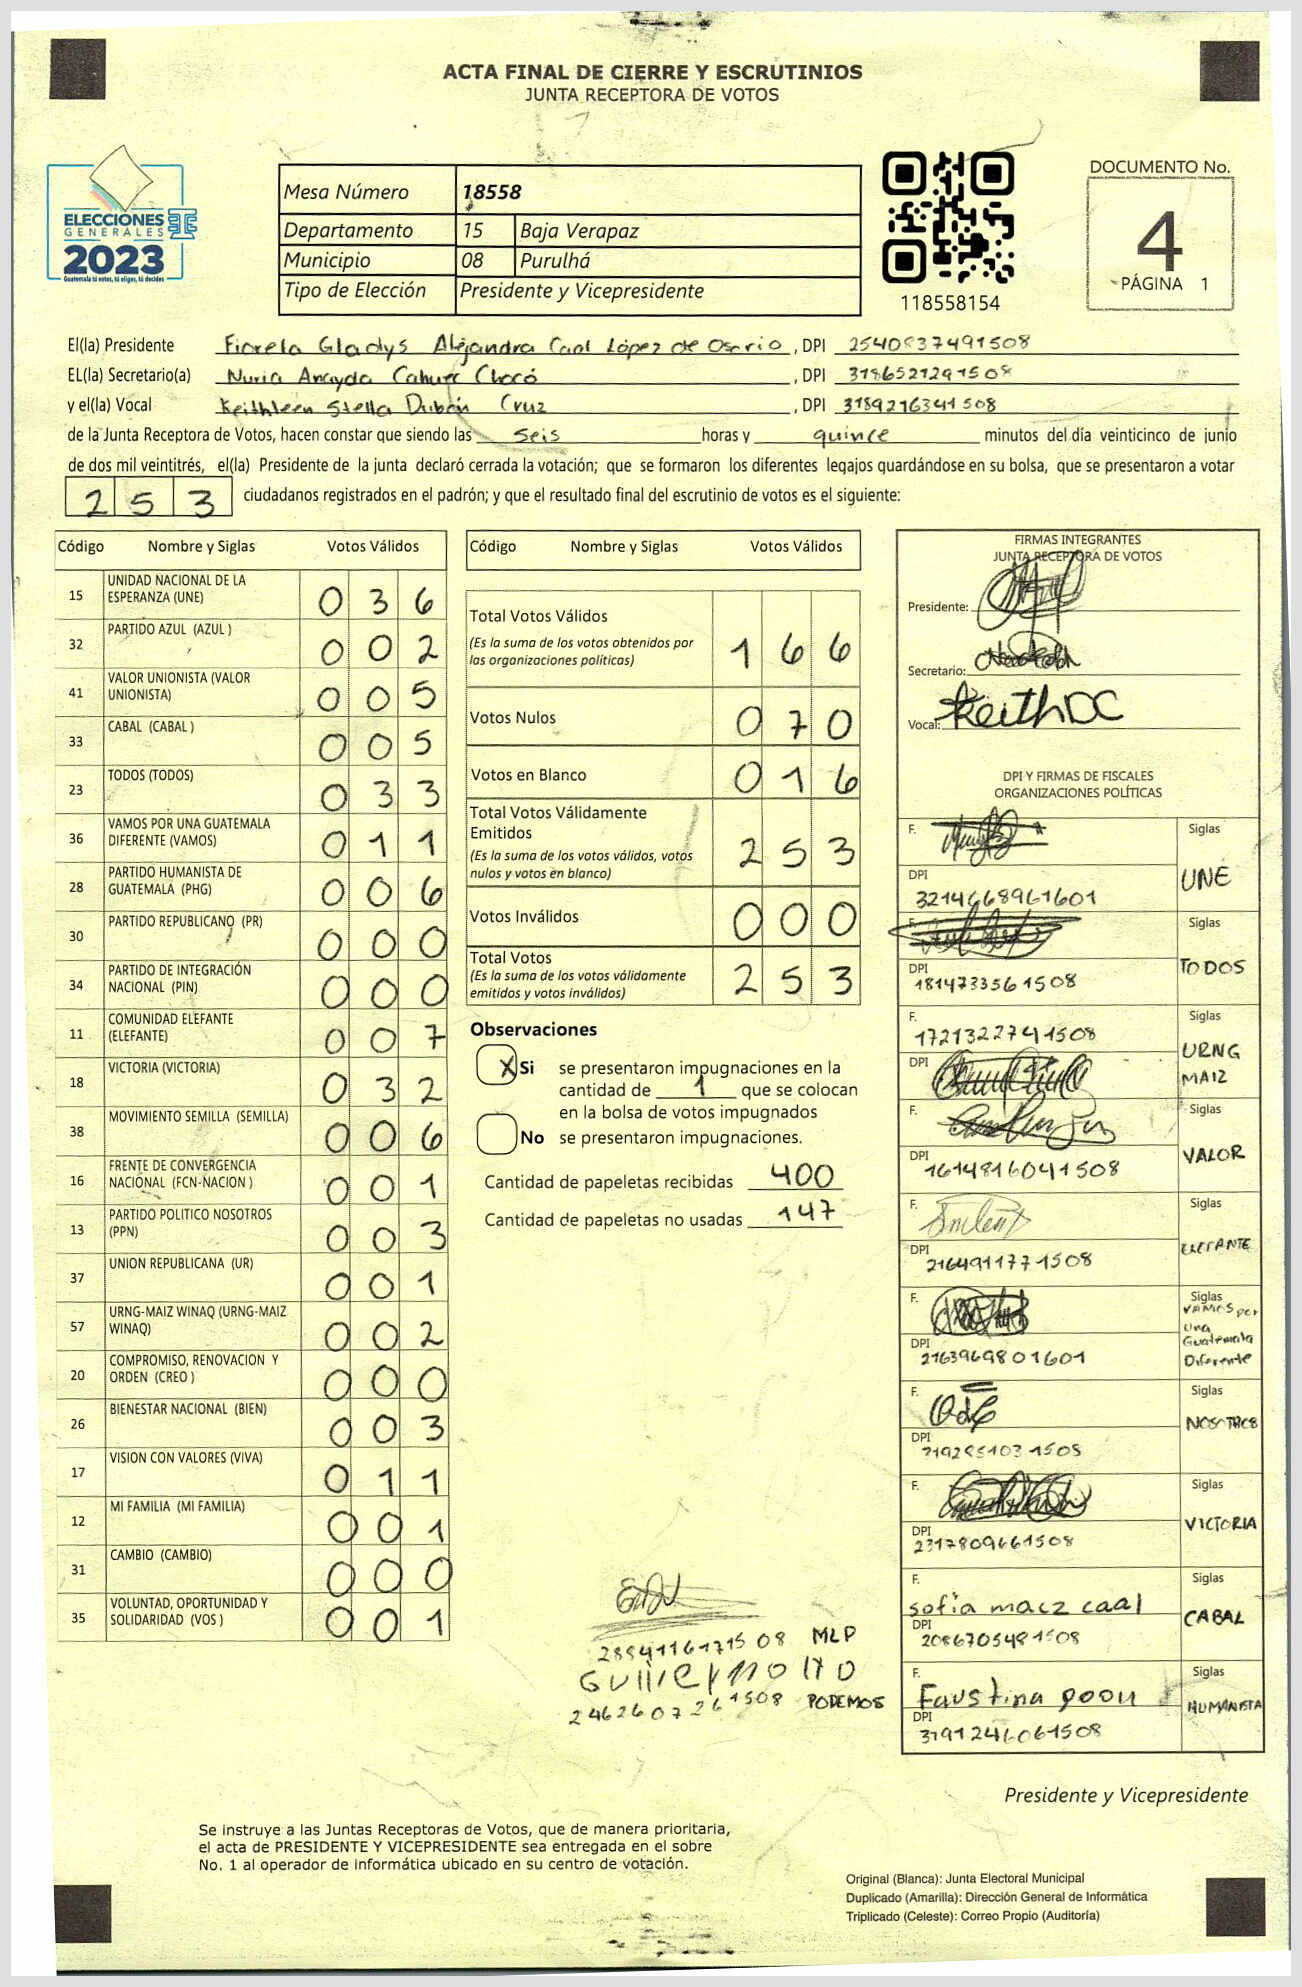 ACTA FINAL DE CIERRE Y ESCRUTINIOS
JUNTA RECEPTORA DE VOTOS
ELECCIONES
GENERALES
2023
Guatemala tú votas, tú eliges, tú decides
Mesa Número 18558
Departamento 15 Baja Verapaz
Municipio 08 Purulhá
Tipo de Elección Presidente y Vicepresidente
118558154
DOCUMENTO No.
4
PÁGINA 1
El(la) Presidente Fiorela Gladys Alejandra Caal López de Osorio, DPI 2540837491508
EL(la) Secretario(a) Nuria Anayda Cahuec Chocó, DPI 3186521291508
y el(la) Vocal Keithleen Stella Dubón Cruz, DPI 3189216341508
de la Junta Receptora de Votos, hacen constar que siendo las seis horas y quince minutos del día veinticinco de junio
de dos mil veintitrés, el(la) Presidente de la junta declaró cerrada la votación; que se formaron los diferentes legajos guardándose en su bolsa, que se presentaron a votar
253 ciudadanos registrados en el padrón; y que el resultado final del escrutinio de votos es el siguiente:
Código Nombre y Siglas Votos Válidos
15 UNIDAD NACIONAL DE LA ESPERANZA (UNE) 036
32 PARTIDO AZUL (AZUL ) 002
41 VALOR UNIONISTA (VALOR UNIONISTA) 005
33 CABAL (CABAL ) 005
23 TODOS (TODOS) 033
36 VAMOS POR UNA GUATEMALA DIFERENTE (VAMOS) 011
28 PARTIDO HUMANISTA DE GUATEMALA (PHG) 006
30 PARTIDO REPUBLICANO (PR) 000
34 PARTIDO DE INTEGRACIÓN NACIONAL (PIN) 000
11 COMUNIDAD ELEFANTE (ELEFANTE) 007
18 VICTORIA (VICTORIA) 032
38 MOVIMIENTO SEMILLA (SEMILLA) 006
16 FRENTE DE CONVERGENCIA NACIONAL (FCN-NACION ) 001
13 PARTIDO POLITICO NOSOTROS (PPN) 003
37 UNION REPUBLICANA (UR) 001
57 URNG-MAIZ WINAQ (URNG-MAIZ WINAQ) 002
20 COMPROMISO, RENOVACION Y ORDEN (CREO ) 000
26 BIENESTAR NACIONAL (BIEN) 003
17 VISION CON VALORES (VIVA) 011
12 MI FAMILIA (MI FAMILIA) 001
31 CAMBIO (CAMBIO) 000
35 VOLUNTAD, OPORTUNIDAD Y SOLIDARIDAD (VOS ) 001
Código Nombre y Siglas Votos Válidos
Total Votos Válidos 166
(Es la suma de los votos obtenidos por las organizaciones políticas)
Votos Nulos 070
Votos en Blanco 016
Total Votos Válidamente Emitidos 253
(Es la suma de los votos válidos, votos nulos y votos en blanco)
Votos Inválidos 000
Total Votos 253
(Es la suma de los votos válidamente emitidos y votos inválidos)
Observaciones
X Si se presentaron impugnaciones en la
cantidad de 1 que se colocan
en la bolsa de votos impugnados
No se presentaron impugnaciones.
Cantidad de papeletas recibidas 400
Cantidad de papeletas no usadas 147
MLP
Guillermo
PODEMOS
FIRMAS INTEGRANTES
JUNTA RECEPTORA DE VOTOS
Presidente:
Secretario:
Vocal: KeithDC
DPI Y FIRMAS DE FISCALES
ORGANIZACIONES POLÍTICAS
F. Siglas
DPI UNE
3214668961601
F. Siglas
DPI TODOS
1814733561508
F. Siglas
1721322741508
DPI URNG MAIZ
F. Siglas
DPI VALOR
1614816041508
F. Siglas
DPI ELEFANTE
2164911771508
F. Siglas
VAMOS por Una Guatemala Diferente
DPI
2163969801601
F. Siglas
DPI NOSOTROS
F. Siglas
DPI VICTORIA
2317809661508
F. Siglas
sofia macz caal
DPI CABAL
2086705481508
F. Siglas
Faustina
DPI HUMANISTA
3191246061508
Presidente y Vicepresidente
Se instruye a las Juntas Receptoras de Votos, que de manera prioritaria,
el acta de PRESIDENTE Y VICEPRESIDENTE sea entregada en el sobre
No. 1 al operador de informática ubicado en su centro de votación.
Original (Blanca): Junta Electoral Municipal
Duplicado (Amarilla): Dirección General de Informática
Triplicado (Celeste): Correo Propio (Auditoría)